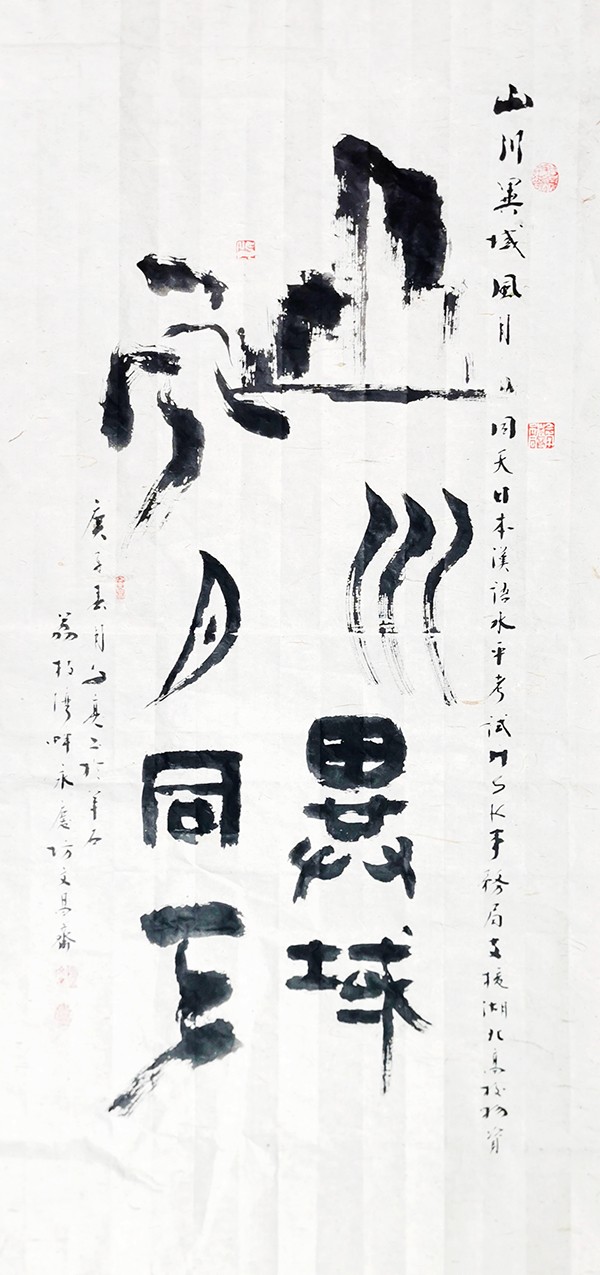 山川異域風月同天日本漢語水平考試HSK事務局支援湖北高校物資
山川異域
風月同天
庚子春月於羊石
荔枝灣畔永慶坊文昌齋